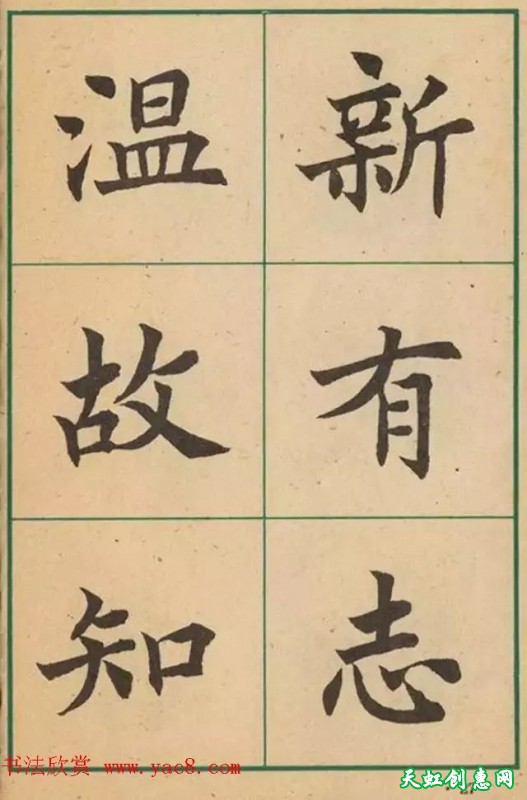 温故知
新有志
书法欣赏 www.yac8.com
天虹创惠网